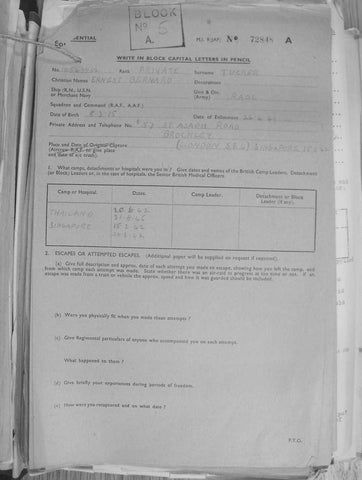 BLOCK
No 5
A.
DENTIAL
M.I. 9/JAP/ No 72848 A
WRITE IN BLOCK CAPITAL LETTERS IN PENCIL
No. Rank PRIVATE Surname TUCKER
Christian Names ERNEST BERNARD Decorations
Ship (R.N., U.S.N. or Merchant Navy Unit & Div. (Army) RAOC
Squadron and Command (R.A.F., A.A.F.)
Date of Birth Date of Enlistment
Private Address and Telephone No. ROAD
BROCKLEY
Place and Date of Original Capture (LONDON S.E.4) SINGAPORE 15.2.42
(Aircrew R.A.F. to give place and date of a/c crash).
1. What camps, detachments or hospitals were you in? Give dates and names of the British Camp Leaders, Detachment (or Block) Leaders or, in the case of hospitals, the Senior British Medical Officers.
Camp or Hospital. Dates. Camp Leader. Detachment or Block Leader (if any).
THAILAND
SINGAPORE 15.2.42
2. ESCAPES OR ATTEMPTED ESCAPES. (Additional paper will be supplied on request if required).
(a) Give full description and approx. date of each attempt you made to escape, showing how you left the camp, and from which camp each attempt was made. State whether there was an air-raid in progress at the time or not. If an escape was made from a train or vehicle the approx. speed and how it was guarded should be included.
(b) Were you physically fit when you made these attempts?
(c) Give Regimental particulars of anyone who accompanied you on each attempt.
What happened to them?
(d) Give briefly your experiences during periods of freedom.
(e) How were you recaptured and on what date?
P.T.O.